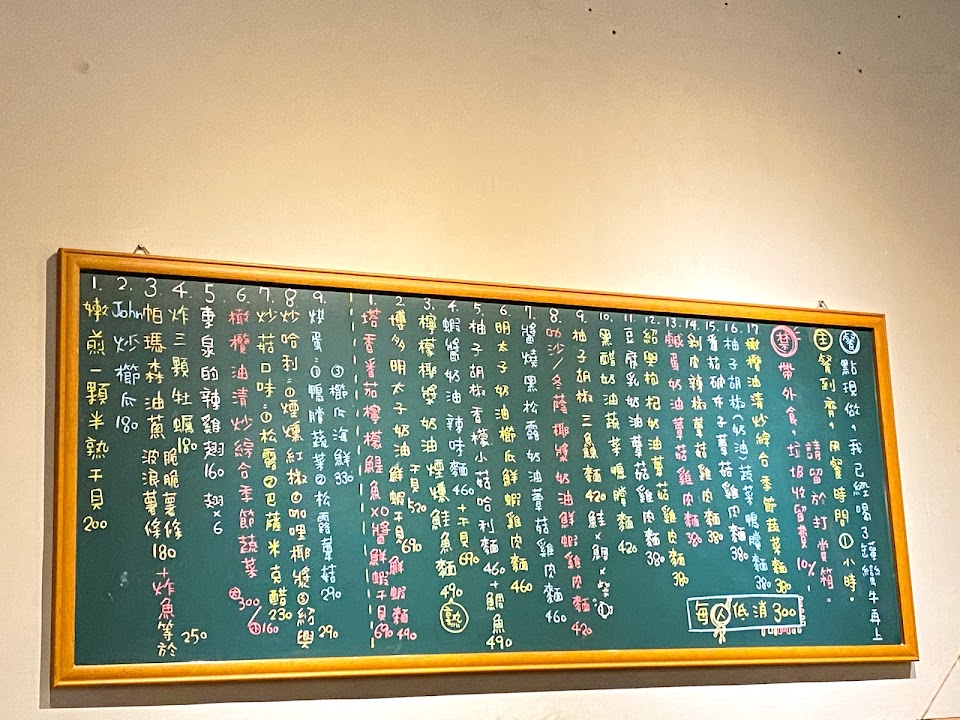 1. 嫩煎一顆半熟干貝 200
2. John炒櫛瓜 180
3. 帕瑪森油蔥波浪薯條 180 + 炸魚等於 250
脆脆薯條
4. 炸三顆牡蠣 180
5. 車泉的辣雞翅 160 翅x6
6. 橄欖油清炒綜合季節蔬菜 大300/小160
7. 炒菇口味:①松露②巴薩米克醋 230
8. 炒哈利:①煙燻紅椒②咖哩椰醬③紹興 290
9. 烘蛋:①鴨賞蔬菜②松露蕈菇 290
③櫛瓜海鮮 330
1. 塔香番茄檸檬鯷魚xo醬鮮蝦干貝 690
鮮蝦麵 490
2. 博多明太子奶油鮮蝦干貝 690
鮮蝦麵 520
3. 檸檬椰醬奶油煙燻鮭魚麵 490 熟
4. 蝦醬奶油辣味麵 460 +干貝 690
5. 柚子胡椒香檬小菇哈利麵 460 +鯛魚 490
6. 明太子奶油櫛瓜鮮蝦雞肉麵 460
7. 醬燒黑松露奶油蕈菇雞肉麵 460
8. 叻沙/冬蔭椰醬奶油鮮蝦雞肉麵 420
9. 柚子胡椒三魚麵 420 鮭x鯛x
10. 果醋奶油蔬菜鴨賞麵 420
11. 豆腐乳奶油蕈菇雞肉麵 380
12. 紹興枸杞奶油蕈菇雞肉麵 380
13. 鹹蛋奶油蕈菇雞肉麵 380
14. 剝皮辣椒蕈菇雞肉麵 380
15. 番茄破布子蕈菇雞肉麵 380
16. 柚子胡椒奶油蔬菜鴨賞麵 380
17. 橄欖油清炒綜合季節蔬菜麵 380
每人低消300
禁帶外食。垃圾收留費10%
請留於打賞箱。
全餐到齊。用餐時間①小時。
餐點現做。我已經喝了蠻牛再上